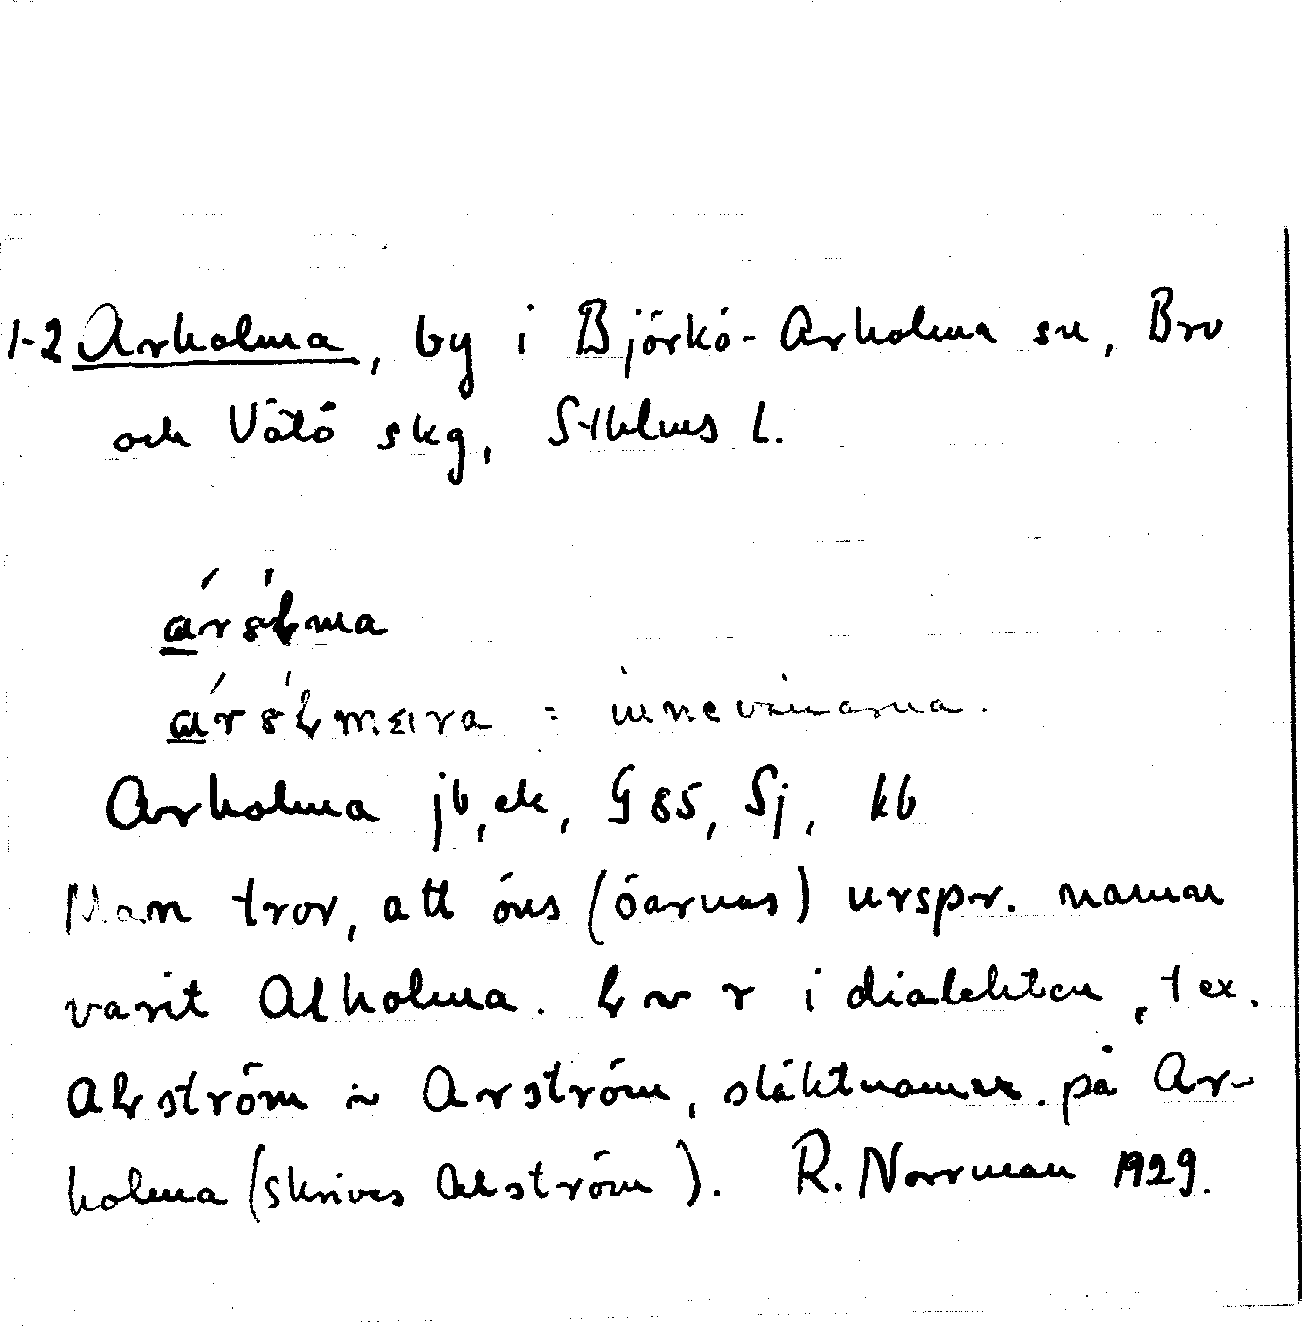 1-2 Arholma, by i Björkö-Arholma sn, Bro
och Vätö skg, Sthlms l.
Arholma jb, ek, G 85, Sj, kb
Man tror, att öns (öarnas) urspr. namn
varit Alholma. Ł ~ r i dialekten, t ex.
Ałström ~ Arström, släktnamn på Ar-
holma (skrives Alström). R. Norrman 1929.